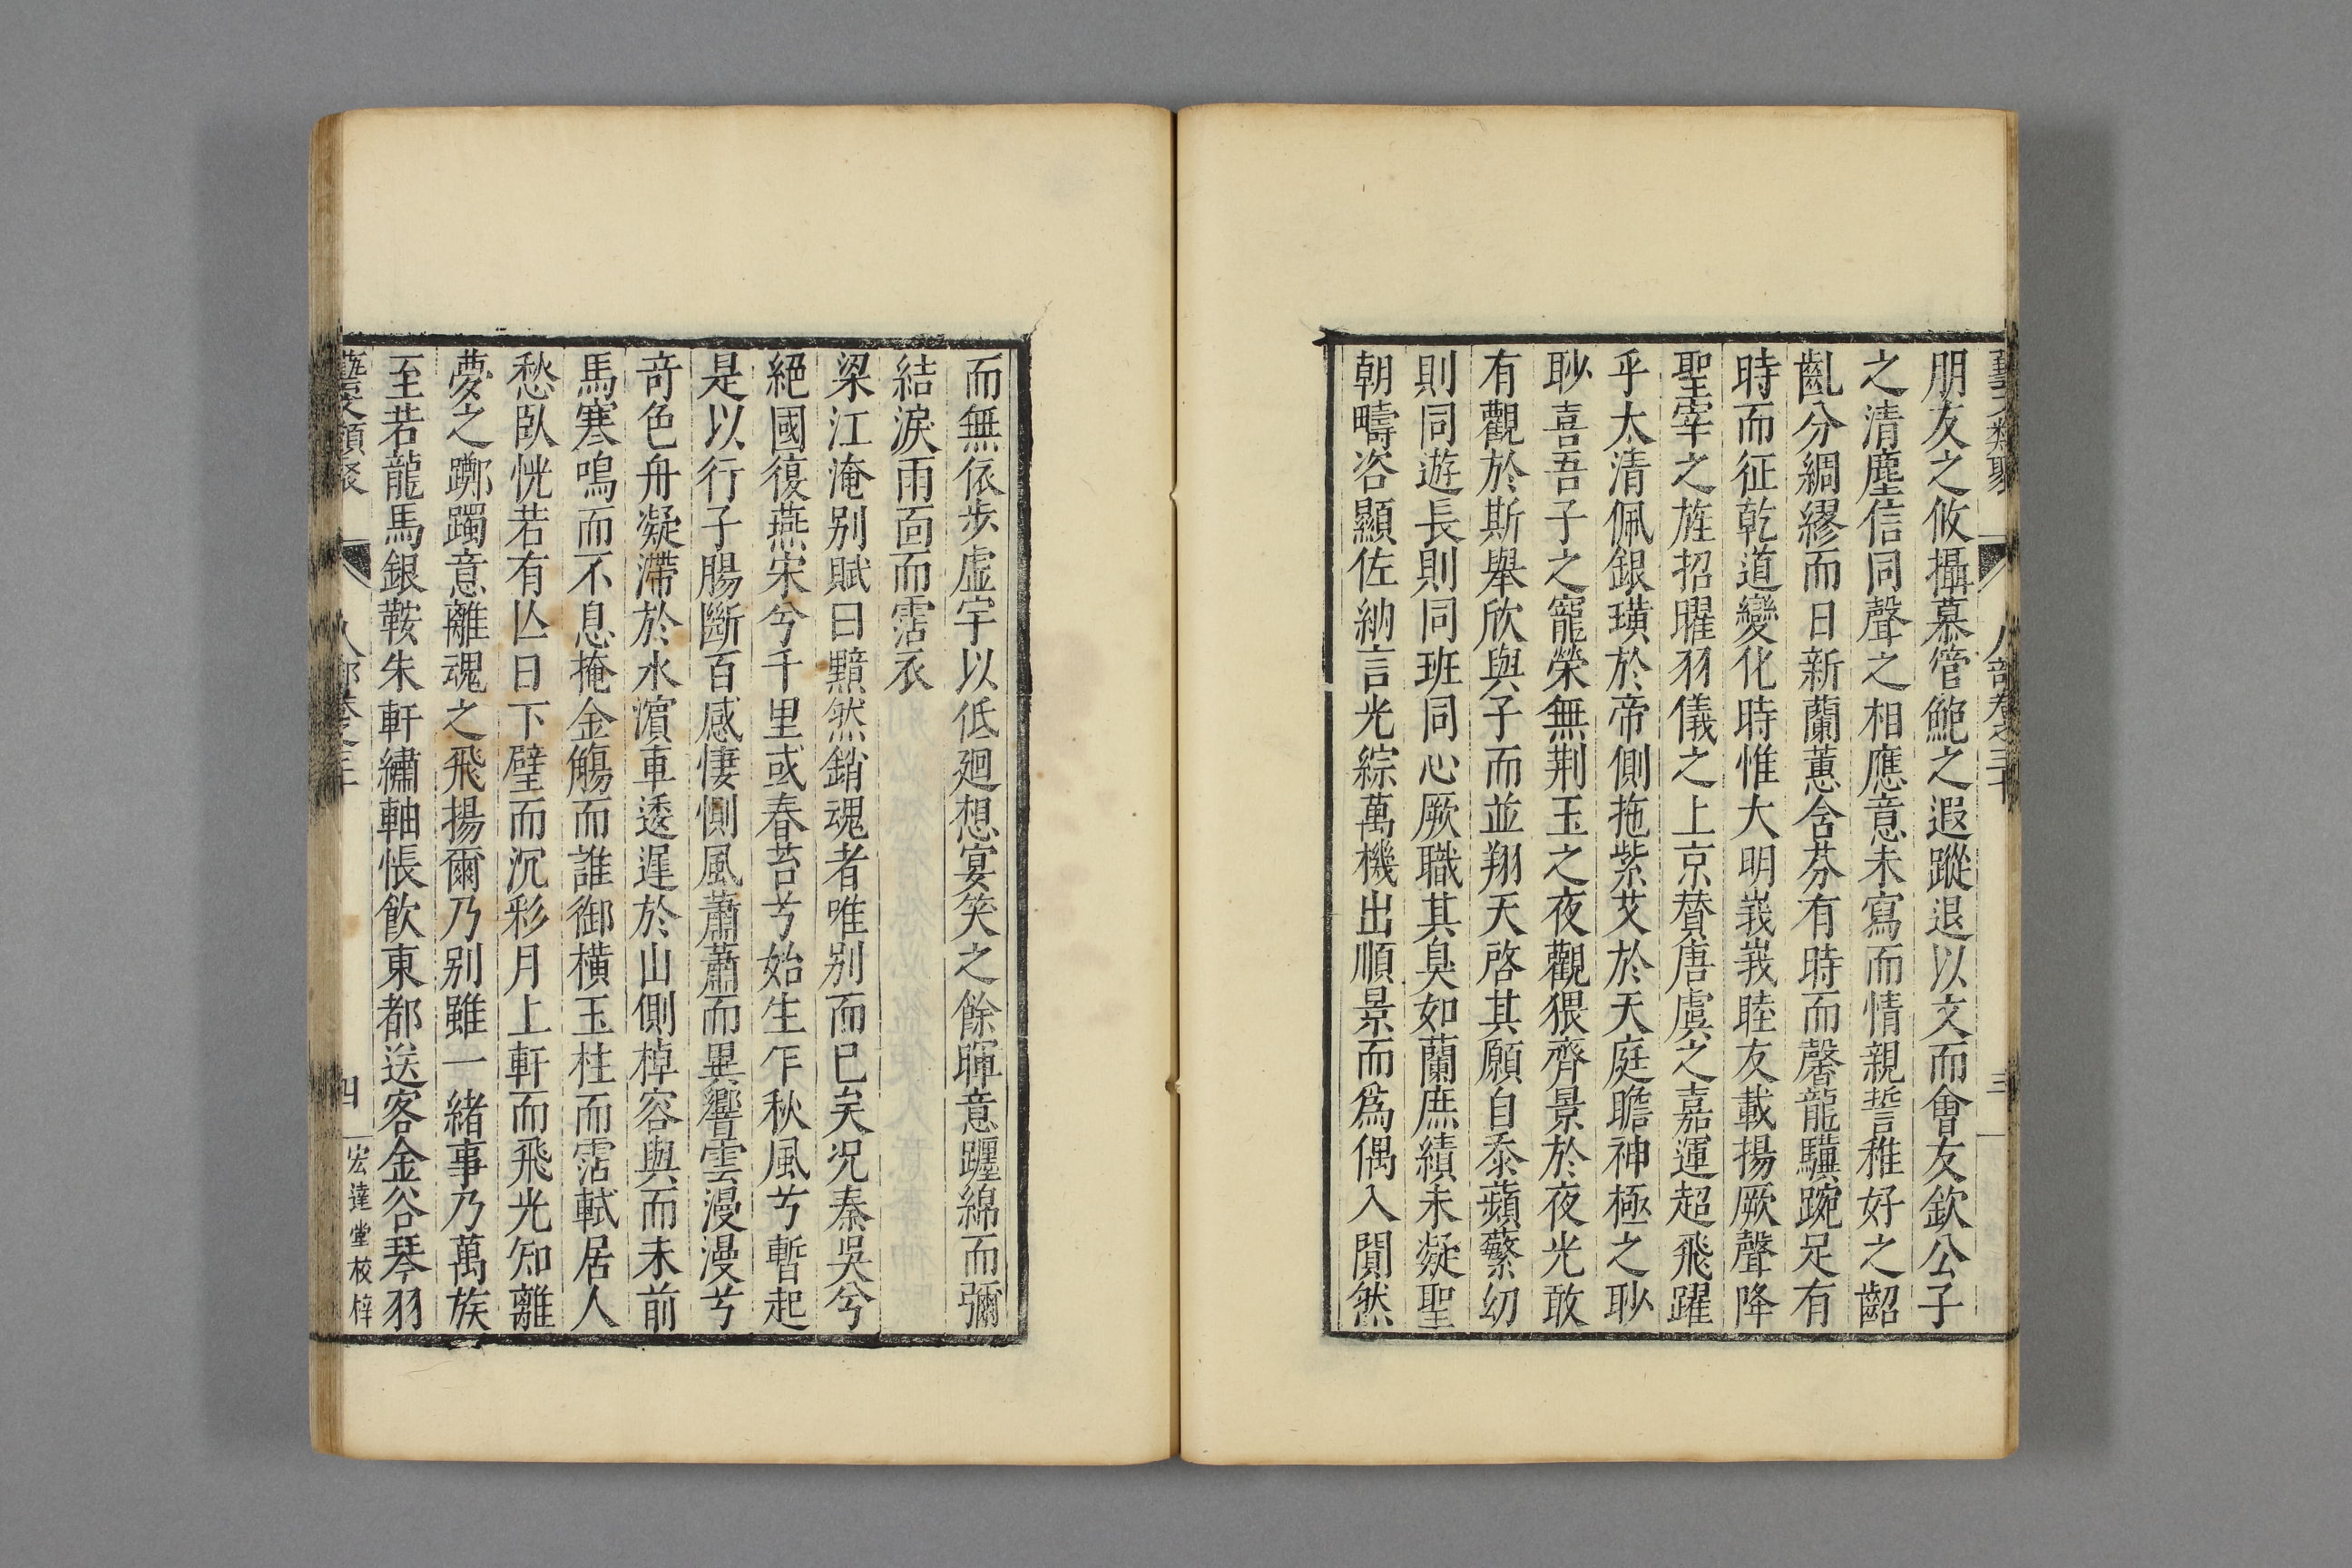 藝文類聚 人部卷之三十 三
朋友之攸攝慕管鮑之遐蹤退以文而會友欽公子
之清塵信同聲之相應意未寫而情親誓稚好之齠
齔分綢繆而日新蘭蕙含芬有時而馨龍驥踠足有
時而征乾道變化時惟大明峩峩睦友載揚厥聲降
聖宰之旌招曜羽儀之上京賛唐虞之嘉運超飛躍
乎太清佩銀璜於帝側拖紫艾於天庭瞻神極之眇
眇喜吾子之寵榮無荆玉之夜觀猥齊景於夜光敢
有觀於斯舉欣與子而並翔天啓其願自忝蘋蘩幼
則同遊長則同班同心厥職其臭如蘭庶績未凝聖
朝疇咨顯佐納言光綜萬機出順景而爲偶入閴然
而無依步虚宇以低廻想宴笑之餘暉意躔綿而彌
結淚雨面而霑衣
梁江淹别賦曰黯然銷魂者唯别而已矣况秦吳兮
絕國復燕宋兮千里或春苔兮始生乍秋風兮暫起
是以行子腸斷百感悽惻風蕭蕭而異響雲漫漫兮
竒色舟凝滯於水濵車逶遲於山側棹容與而未前
馬寒鳴而不息掩金觴而誰御橫玉柱而霑軾居人
愁臥恍若有亾日下壁而沉彩月上軒而飛光知離
夢之躑躅意離魂之飛揚爾乃别雖一緒事乃萬族
至若龍馬銀鞍朱軒繡軸悵飲東都送客金谷琴羽
藝文類聚 人部卷之三十 四 宏達堂校梓